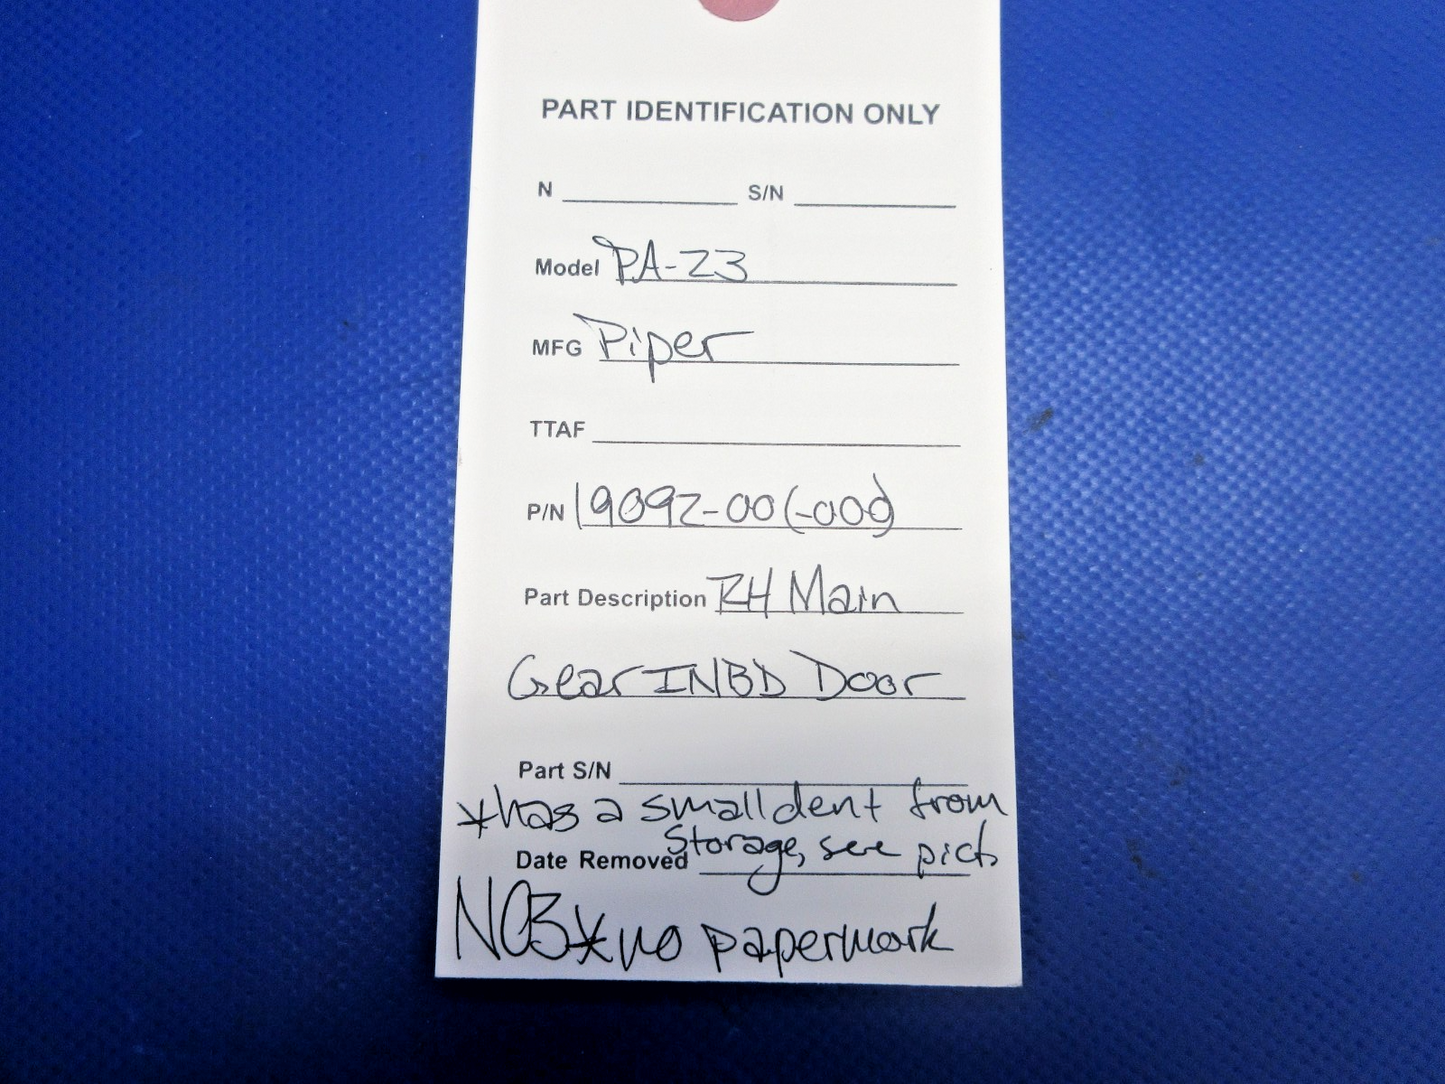 PART IDENTIFICATION ONLY
N S/N
Model PA-23
MFG Piper
TTAF
P/N 19092-00 (-000)
Part Description RH Main
Gear INBD Door
Part S/N
*has a small dent from
Storage, see pics
Date Removed
NOS * no paperwork